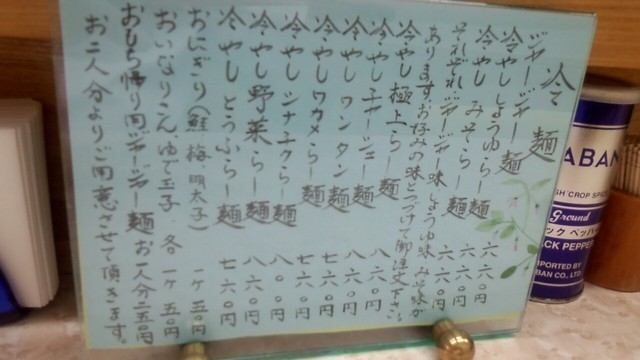 冷麺
ジャージャー麺 六六〇円
冷やし しょうゆらー麺 六六〇円
冷やし みそらー麺 六六〇円
それぞれ、ジャージャー味 しょうゆ味 みそ味が
あります お好みの味とつけて御注文下さい
冷やし 極上らー麺 八六〇円
冷やし チャーシュー麺 八六〇円
冷やし ワンタン麺 八六〇円
冷やし ワカメらー麺 七六〇円
冷やし シナチクらー麺 七六〇円
冷やし 野菜らー麺 八六〇円
冷やし とうふらー麺 七六〇円
おにぎり（鮭 梅 明太子） 一ケ 一五〇円
おいなりさん、ゆで玉子 各 一ケ 五〇円
おもち帰り用ジャージャー麺 お二人分
お二人分よりご用意させて頂きます。
ABAN
SH CROP SPICE
Ground
ック ペッパー
ACK PEPPER
IMPORTED BY
BAN CO., LTD.